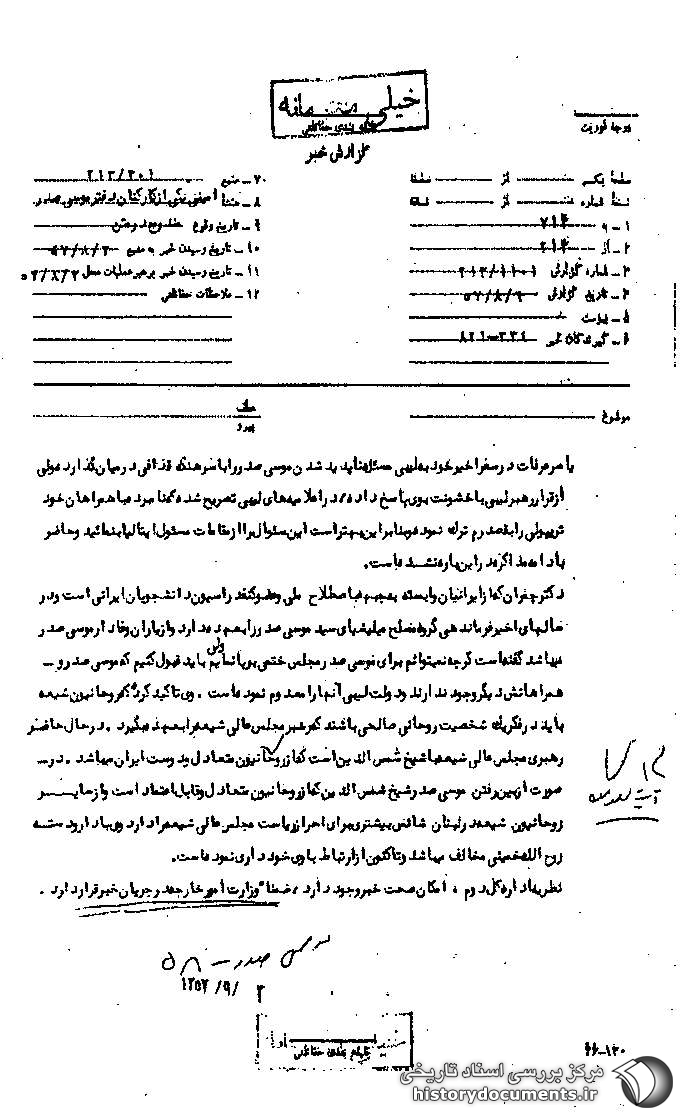 خیلی محرمانه
طبقه بندی حفاظتی
درجه فوریت
گزارش خبر
صفحه یکم از صفحه
نسخه شماره از نسخه
۱ – به ۷۱۴
۲ – از ۲۱۴
۳ – شماره گزارش ۲۱۳/۱۱۰۱
۴ – تاریخ گزارش
۵ – پیوست
۶ – گیرندگان خبر
۷ – منبع ۲۱۳/۳۰۱
۸ – منشا یکی از کارکنان دفتر موسی صدر
۹ – تاریخ وقوع
۱۰ – تاریخ رسیدن خبر به منبع ۵۷/۸/۲
۱۱ – تاریخ رسیدن خبر برهبر عملیات محل ۵۷/۸/۲
۱۲ – ملاحظات حفاظتی
موضوع
عطف
پیرو
یاسر عرفات در سفر اخیر خود به لیبی مسئله ناپدید شدن موسی صدر را با سرهنگ قذافی در میان گذارده ولی
از قرار رهبر لیبی با خشونت بوی پاسخ داده که در اعلامیه های لیبی تصریح شده که نامبرده با همراهان خود
تریپولی را بقصد رم ترک نموده و بنابراین بهتر است این سئوال را از مقامات مسئول ایتالیا بنمائید و حاضر
بادامه مذاکره در این باره نشده است.
دکتر چمران که از ایرانیان وابسته به جبهه باصطلاح ملی و عضو کنفدراسیون دانشجویان ایرانی است و در
سالهای اخیر فرماندهی گروه مسلح ملیشیای سید موسی صدر را بعهده دارد و از یاران وفادار موسی صدر
میباشد گفته است گرچه نمیتوانم برای موسی صدر مجلس ختمی برپا نمایم ولی باید قبول کنیم که موسی صدر و –
همراهانش دیگر وجود ندارند و دولت لیبی آنها را معدوم نموده است . وی تاکید کرد که روحانیون شیعه
باید در فکر یک شخصیت روحانی صالحی باشند که رهبر مجلس عالی شیعه را بعهده بگیرد . در حال حاضر
رهبری مجلس عالی شیعه با شیخ شمس الدین است که از روحانیون متعادل و دوست ایران میباشد . در –
صورت از بین رفتن موسی صدر شیخ شمس الدین که از روحانیون متعادل و قابل اعتماد است و از سایر
روحانیون شیعه در لبنان شانس بیشتری برای احراز ریاست مجلس عالی شیعه را دارد وی با دار و دسته
روح الله خمینی مخالف میباشد و تاکنون از ارتباط با وی خودداری نموده است.
نظریه اداره کل دوم ، امکان صحت خبر وجود دارد ، ضمنا وزارت امور خارجه در جریان خبر قرار دارد .
موسی صدر – ۵۸
۱۳۵۷/۹/
۲
طبقه بندی حفاظتی
۶۶-۱۳۰
مرکز بررسی اسناد تاریخی
historydocuments.ir